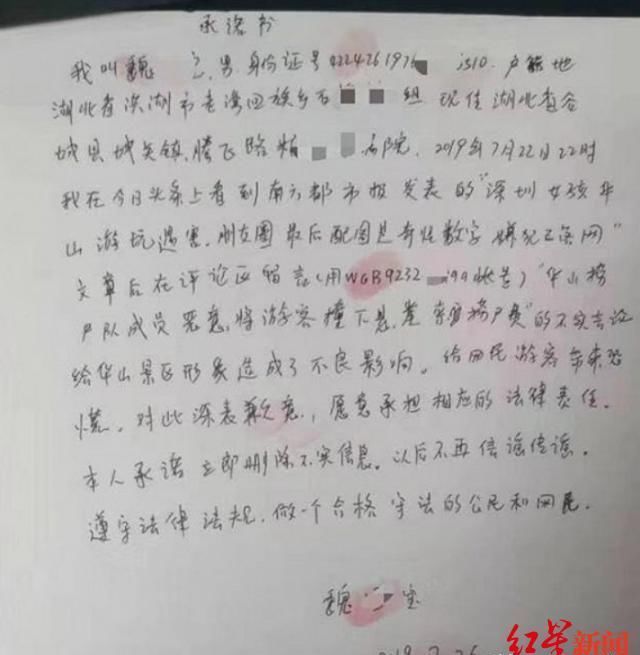 承诺书
我叫魏 之,男,身份证号4224261976 1510.户籍地
湖北省洪湖市老湾回族乡石 组 现住湖北省谷
城县城关镇腾飞路 院,2019年7月22日22时
我在今日头条上看到南方都市报发表的"深圳女孩华
山游玩遇害,朋友圈最后配图是奇怪数字 嫌犯已落网"
文章后在评论区留言(用WGB9232 199帐号)"华山搜
户队成员恶意,将游客撞下悬崖索取搜尸费"的不实言论
给华山景区形象造成了不良影响。给网民游客带来恐
慌。对此深表歉意,愿意承担相应的法律责任.
本人承诺立即删除不实信息。以后不再信谣传谣.
遵守法律法规.做一个合格守法的公民和网民.
魏 宝
红星新闻